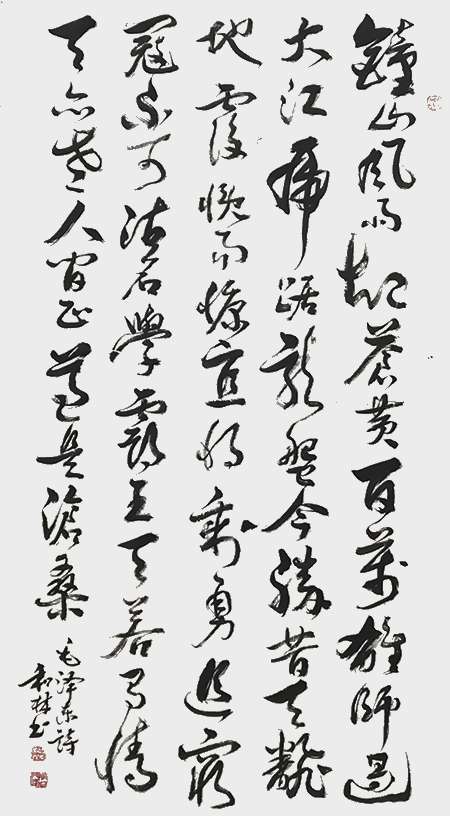 鐘山風雨起蒼黄百萬雄師過
大江虎踞龍盤今勝昔天翻
地覆慨而慷宜將剩勇追窮
寇不可沽名學霸王天若有情
天亦老人間正道是滄桑
毛泽东詩
和林书